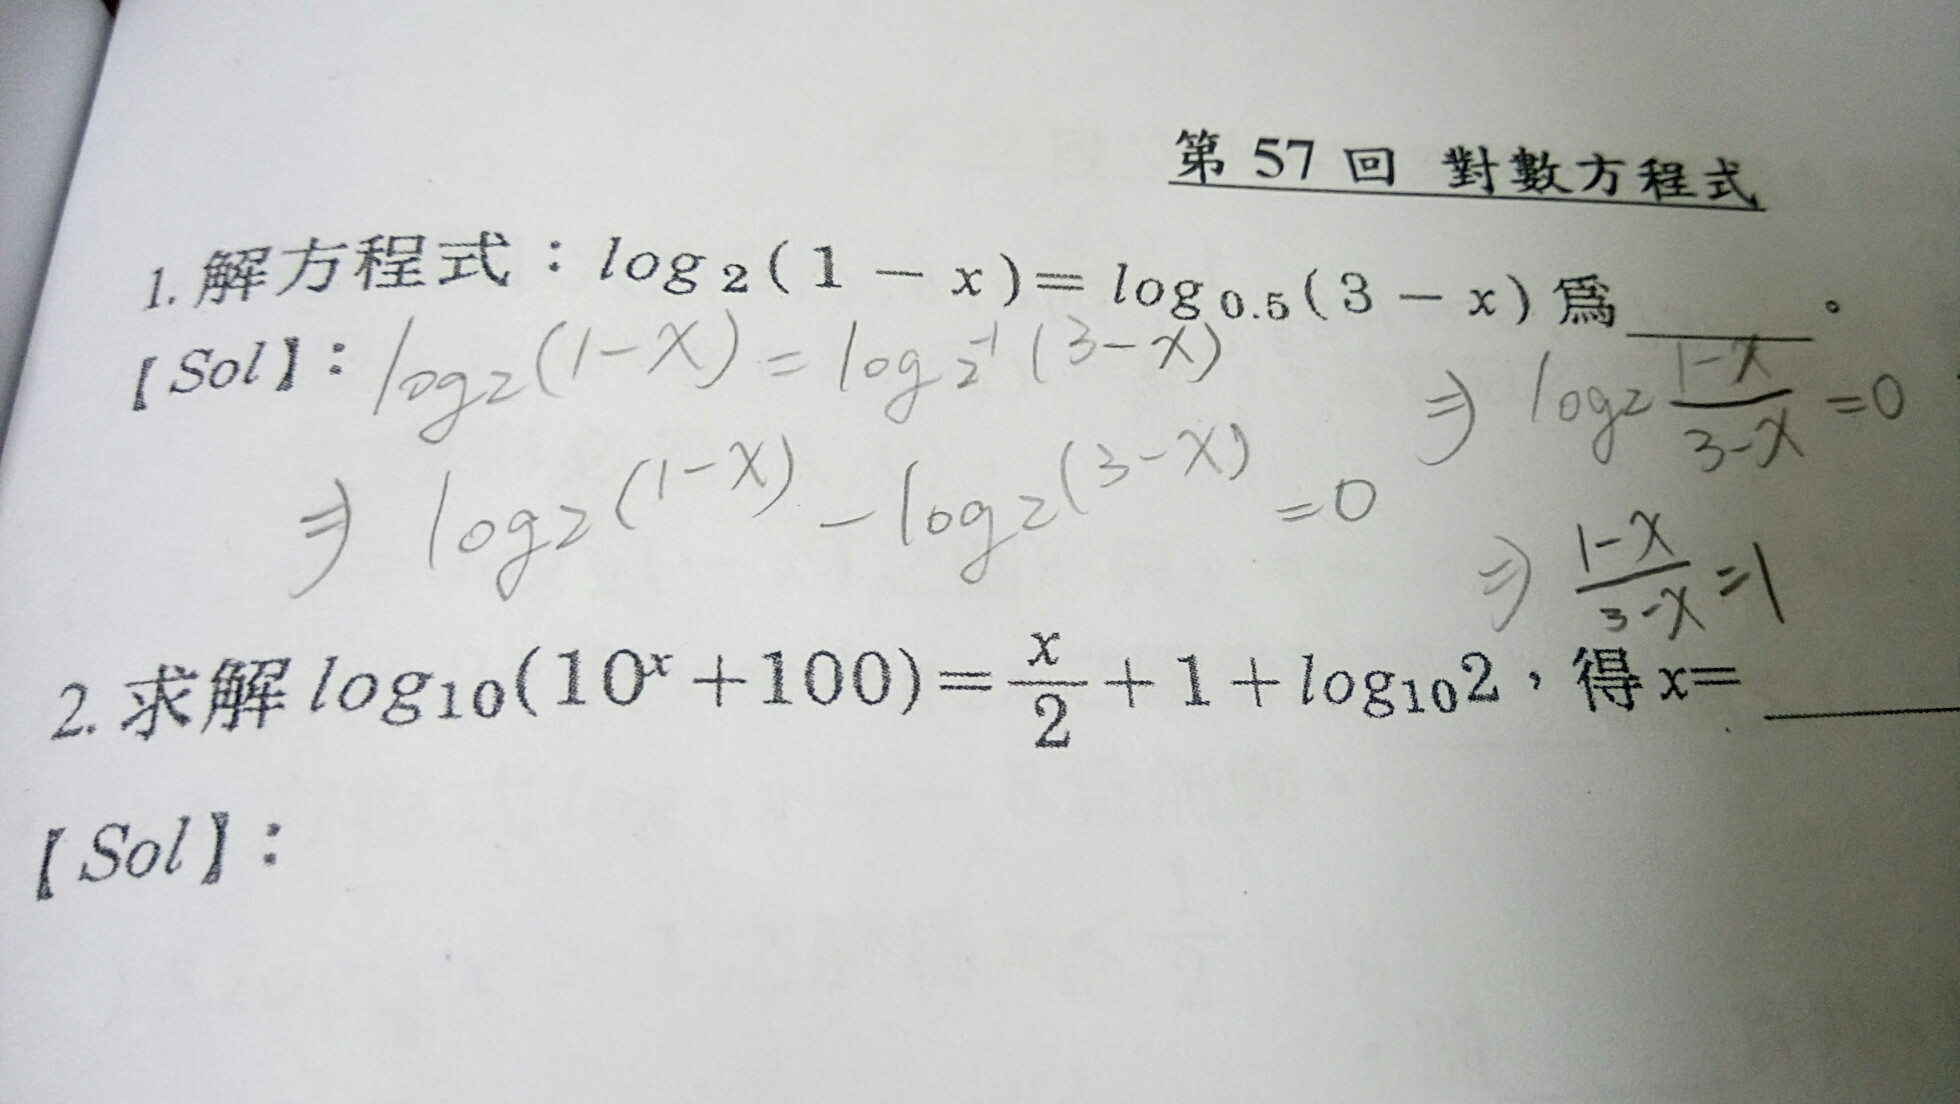 第 57 回 對數方程式
1. 解方程式：log₂(1－x)＝log₀.₅(3－x)爲______。
【Sol】：log₂(1-x) = log₂⁻¹(3-x)
⇒ log₂(1-x) - log₂(3-x) = 0
⇒ log₂ (1-x)/(3-x) = 0
⇒ (1-x)/(3-x) = 1
2. 求解 log₁₀(10ˣ＋100)＝x/2＋1＋log₁₀2，得 x＝______
【Sol】：